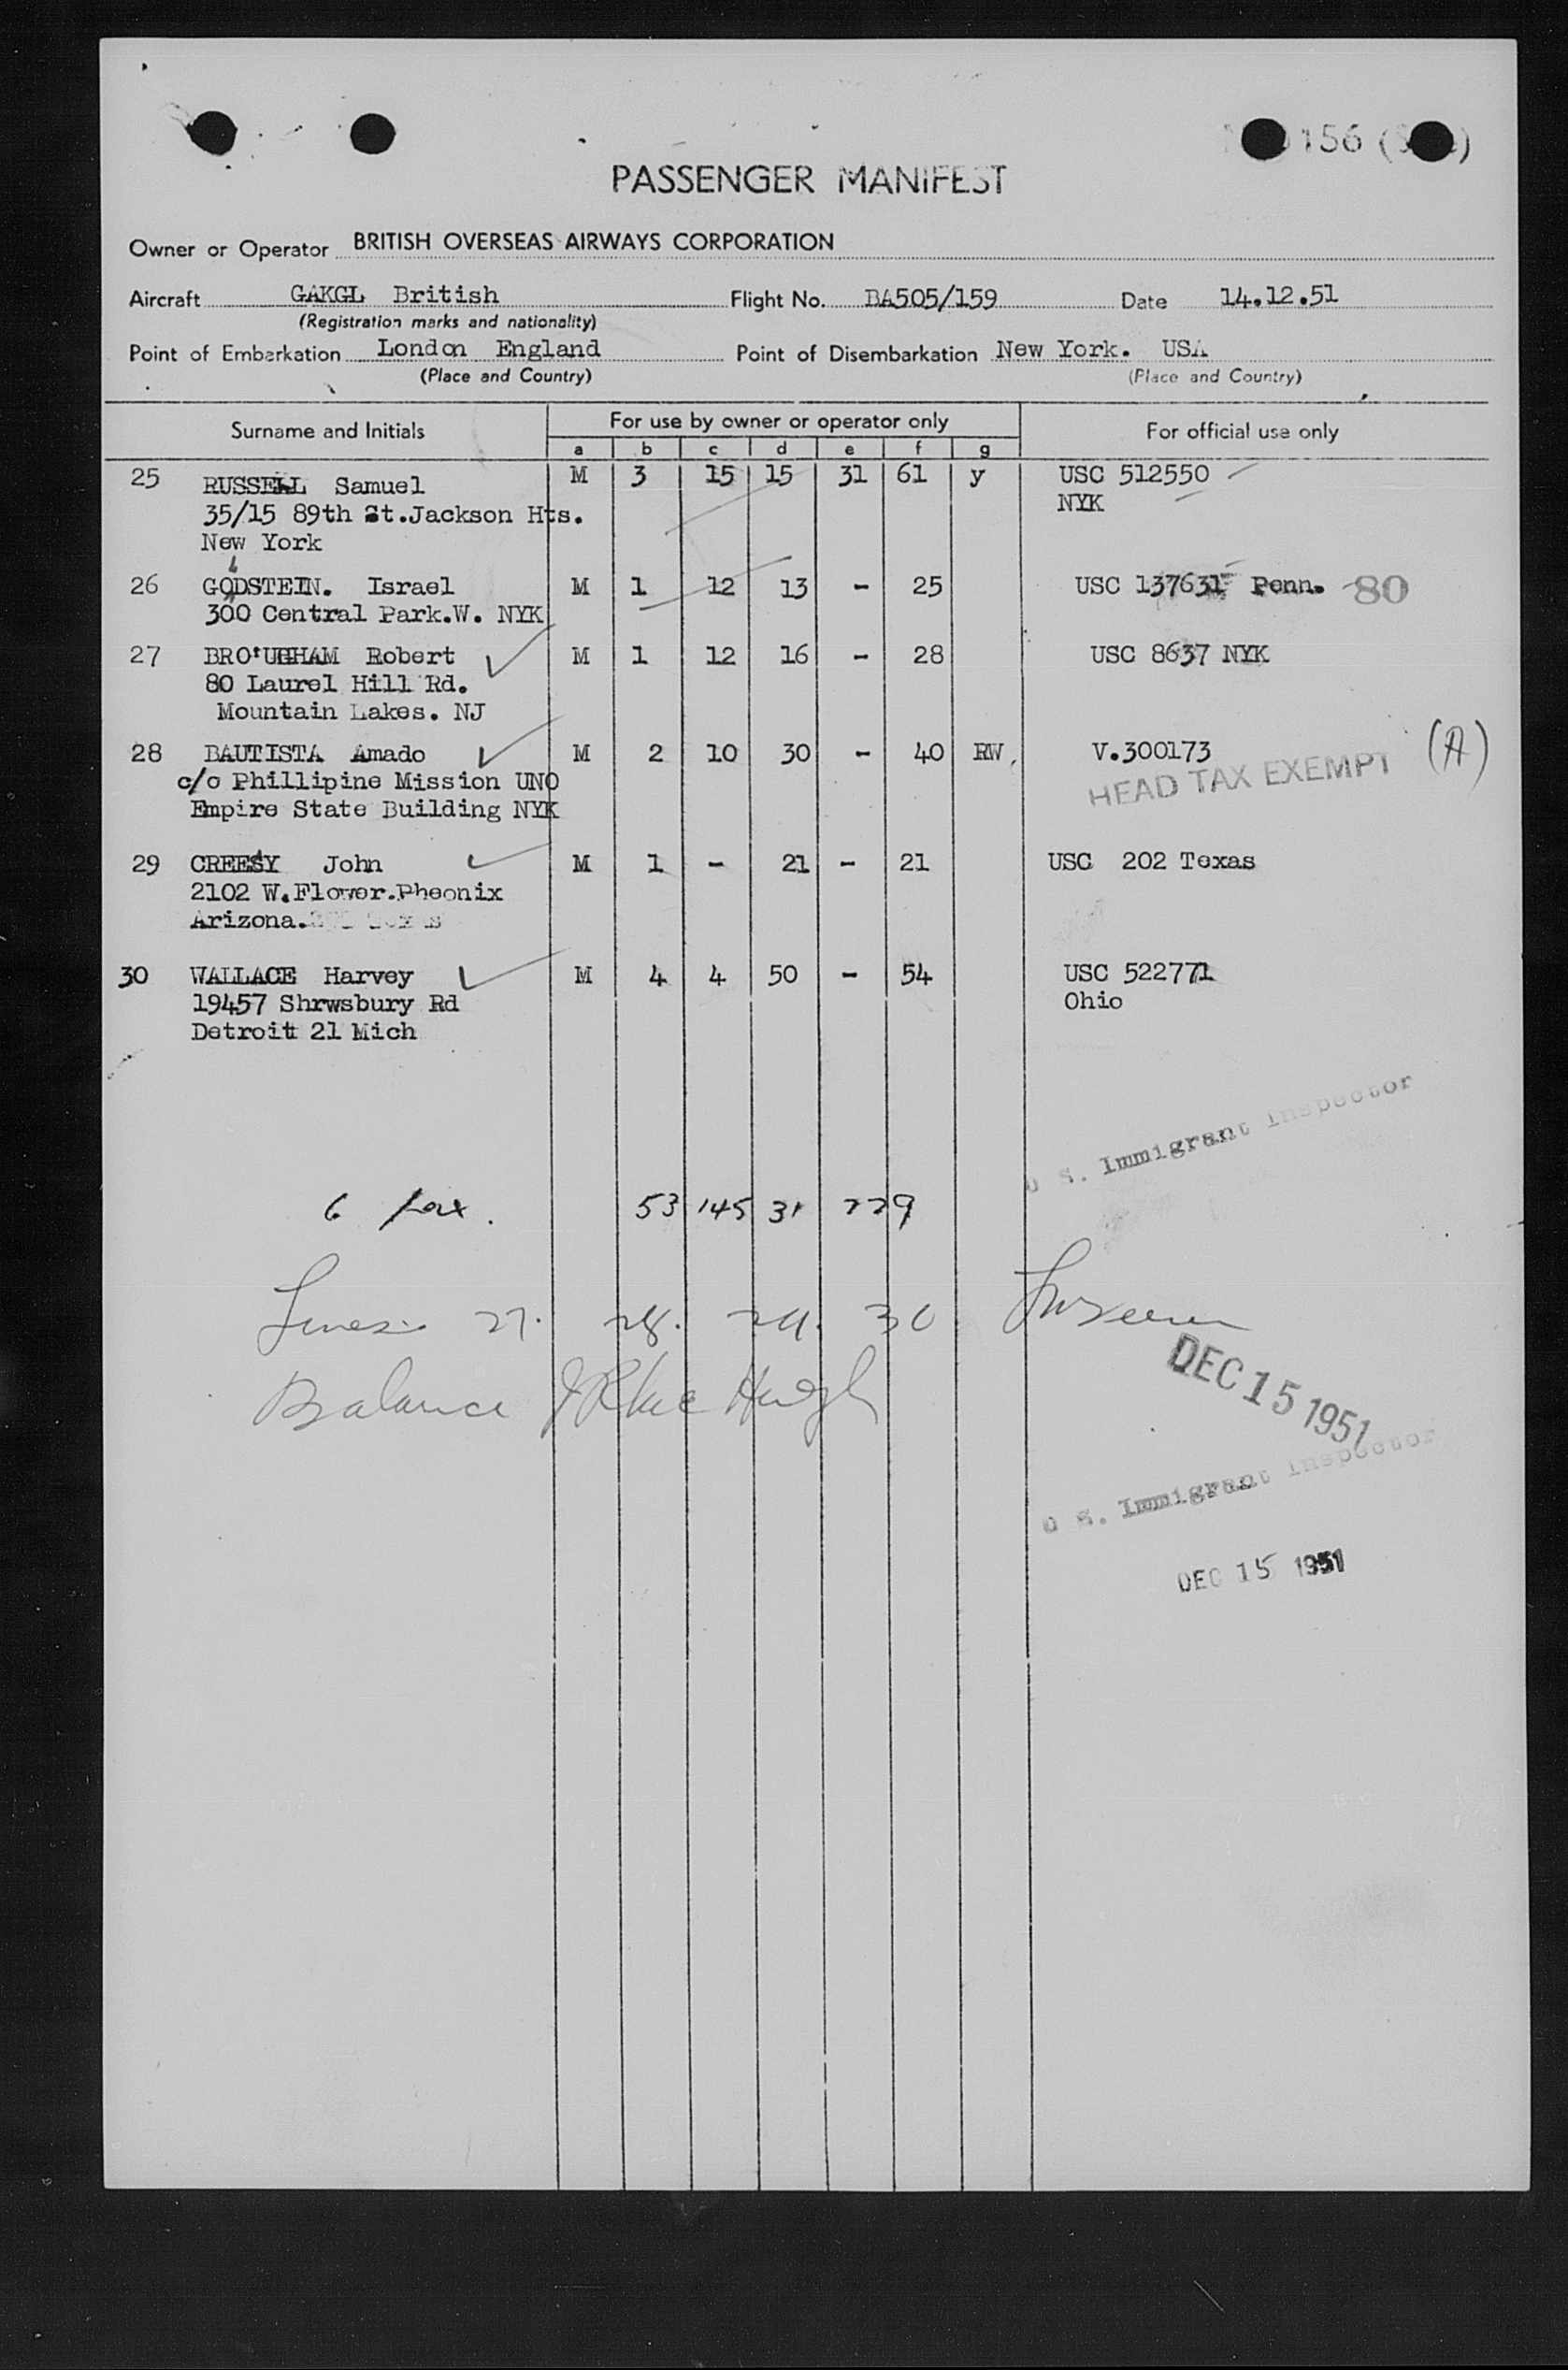 156
PASSENGER MANIFEST
Owner or Operator BRITISH OVERSEAS AIRWAYS CORPORATION
Aircraft GAKGL British Flight No. BA505/159 Date 14.12.51
(Registration marks and nationality)
Point of Embarkation London England Point of Disembarkation New York. USA
(Place and Country) (Place and Country)
Surname and Initials For use by owner or operator only For official use only
a b c d e f g
25 RUSSELL Samuel M 3 15 15 31 61 y USC 512550
35/15 89th St.Jackson Hts. NYK
New York
26 GODSTEIN. Israel M 1 12 13 - 25 USC 137631 Penn. 80
300 Central Park.W. NYK
27 BRO'UGHAM Robert M 1 12 16 - 28 USC 8637 NYK
80 Laurel Hill Rd.
Mountain Lakes. NJ
28 BAUTISTA Amado M 2 10 30 - 40 RW, V.300173 (A)
c/o Phillipine Mission UNO HEAD TAX EXEMPT
Empire State Building NYK
29 CREESY John M 1 - 21 - 21 USC 202 Texas
2102 W.Flower.Pheonix
Arizona.
30 WALLACE Harvey M 4 4 50 - 54 USC 522771
19457 Shrwsbury Rd Ohio
Detroit 21 Mich
U S. Immigrant Inspector
6 pax. 53 145 31 229
Lines 27. 28. 29. 30
Balance
DEC 15 1951
U S. Immigrant Inspector
DEC 15 1951